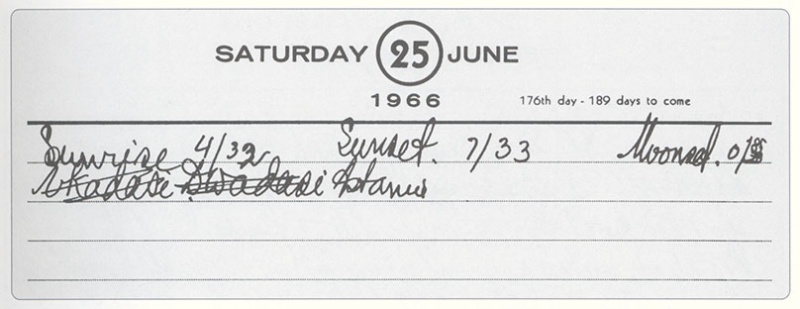 SATURDAY 25 JUNE
1966
176th day - 189 days to come
Sunrise 4/32 Sunset. 7/33 Moonset. 0/
Ekadasi Dwadasi Astami